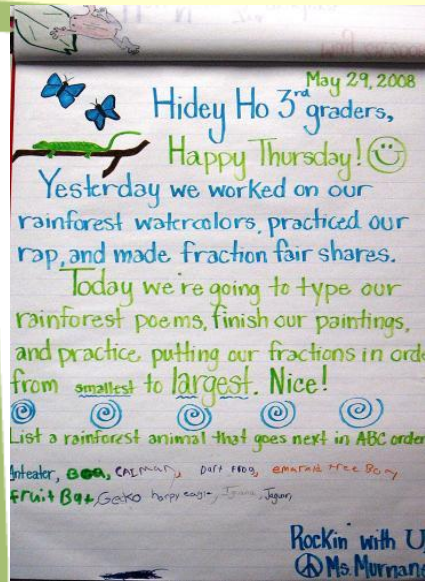 May 29, 2008
Hidey Ho 3rd graders,
Happy Thursday!
Yesterday we worked on our
rainforest watercolors, practiced our
rap, and made fraction fair shares.
Today we're going to type our
rainforest poems, finish our paintings,
and practice putting our fractions in orde
from smallest to largest. Nice!
List a rainforest animal that goes next in ABC order
Anteater, Boa, CAIMAN, Dart Frog, emerald tree Boa,
fruit Bat, Geko harpy eagle, Iguana, Jaguar,
Rockin' with U,
Ms. Murnane